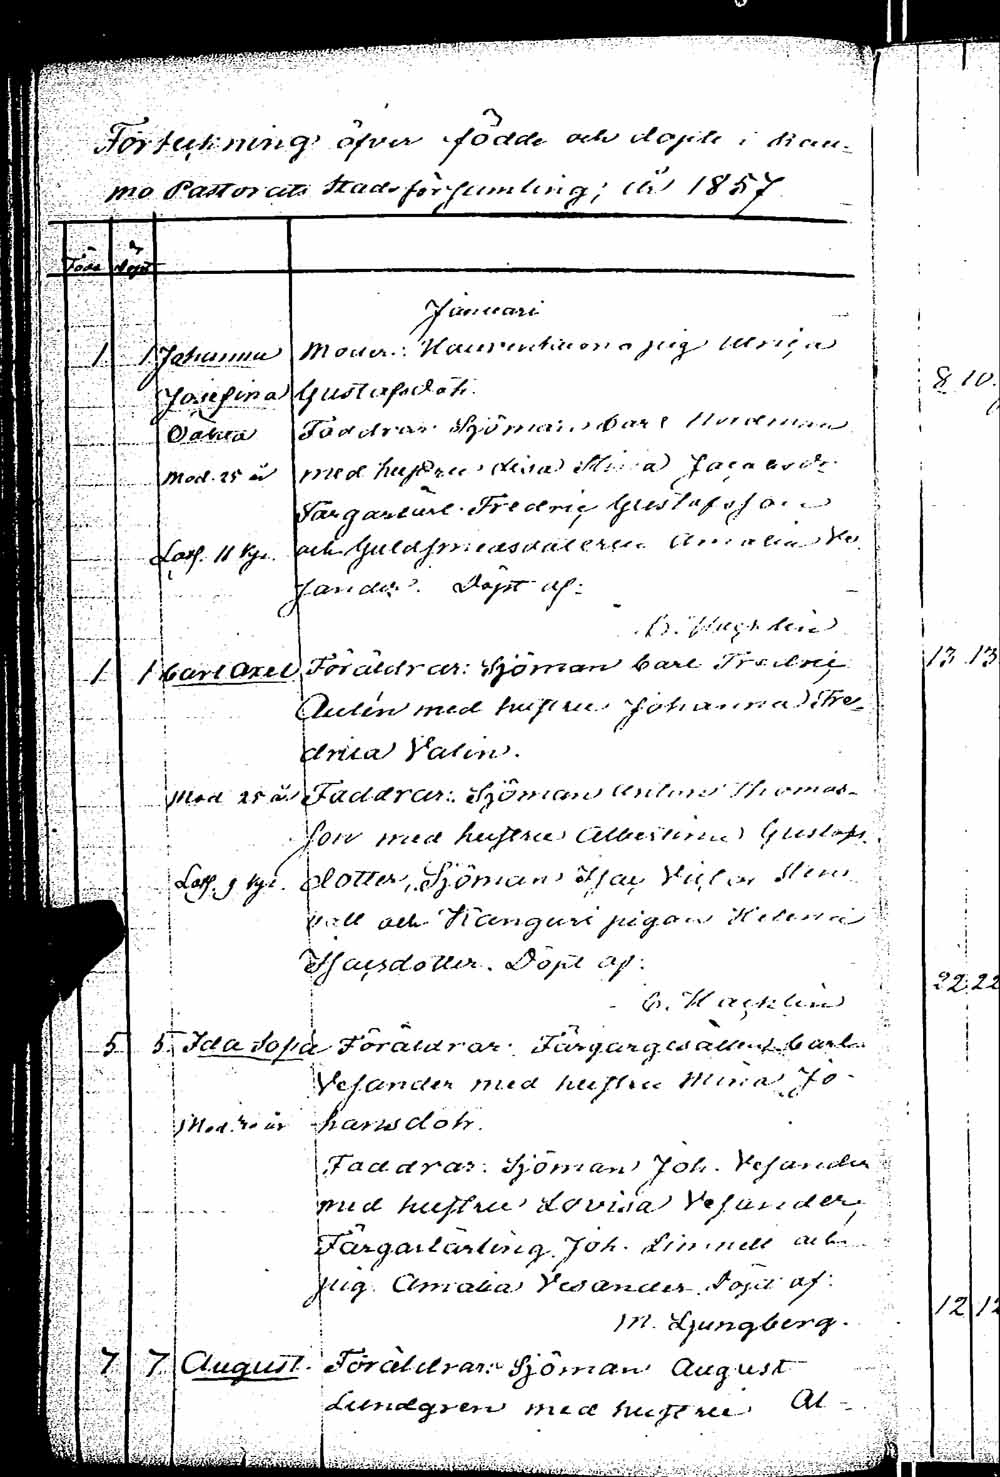 Förteckning öfver födde och döpte i Rau-
mo Pastorats Stads församling, år 1857
Född Döpt
Januari
1 1 Johanna Moder: pig Ulrica
Josefina Gustafsdotr.
Faddrar Sjöman Carl Nordman
Mod. 25 år med hustru Lisa Stina
Färgarlärl. Fredric Gustafsson
Lasf. 11 Kyr. och Guldsmedsdottren Amalia Ve-
sander. Döpt af:
B. Hacklin
1 1 Carl Axel Föräldrar: Sjöman Carl Fredric 13 13
Aulén med hustru Johanna Fre-
drica Valin.
Mod 25 år Faddrar: Sjöman Anton Thomas-
son med hustru Albertina Gustafs
Lasf. 9 Kyr. dotter, Sjöman Isac Victor
och pigan Helena
Isacsdotter. Döpt af:
B. Hacklin 22 22
5 5 Ida Sofia Föräldrar: Färgargesällen Carl
Vesander med hustru Mina Jo-
Mod. år hansdotr.
Faddrar: Sjöman Joh. Vesander
med hustru Lovisa Vesander,
Färgarlärling Joh. Linnell och
pig. Amalia Vesander. Döpt af:
M. Ljungberg. 12 12
7 7 August. Föräldrar: Sjöman August
Lundgren med hustru Al-